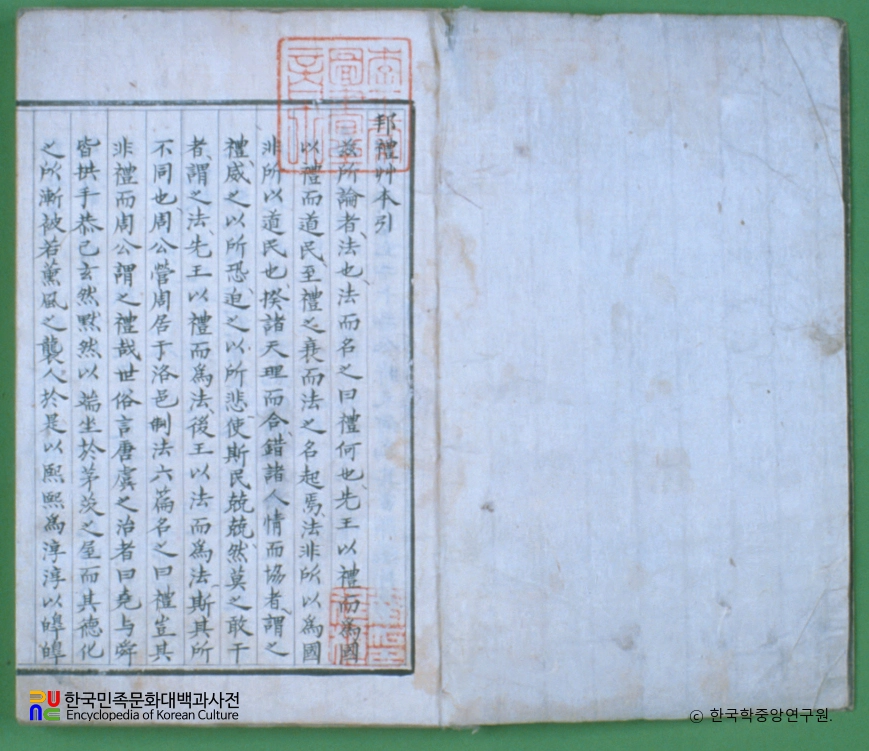 邦禮艸本引
茲所論者法也法而名之曰禮何也先王以禮而爲國
以禮而道民至禮之衰而法之名起焉法非所以爲國
非所以道民也揆諸天理而合錯諸人情而協者謂之
禮威之以所恐迫之以所悲使斯民兢兢然莫之敢干
者謂之法先王以禮而爲法後王以法而爲法斯其所
不同也周公營周居于洛邑制法六篇名之曰禮豈其
非禮而周公謂之禮哉世俗言唐虞之治者曰堯與舜
皆拱手恭己玄然默然以端坐於茅茨之屋而其德化
之所漸被若薰風之襲人於是以熙熙爲淳淳以皥皥
한국민족문화대백과사전
Encyclopedia of Korean Culture
© 한국학중앙연구원.